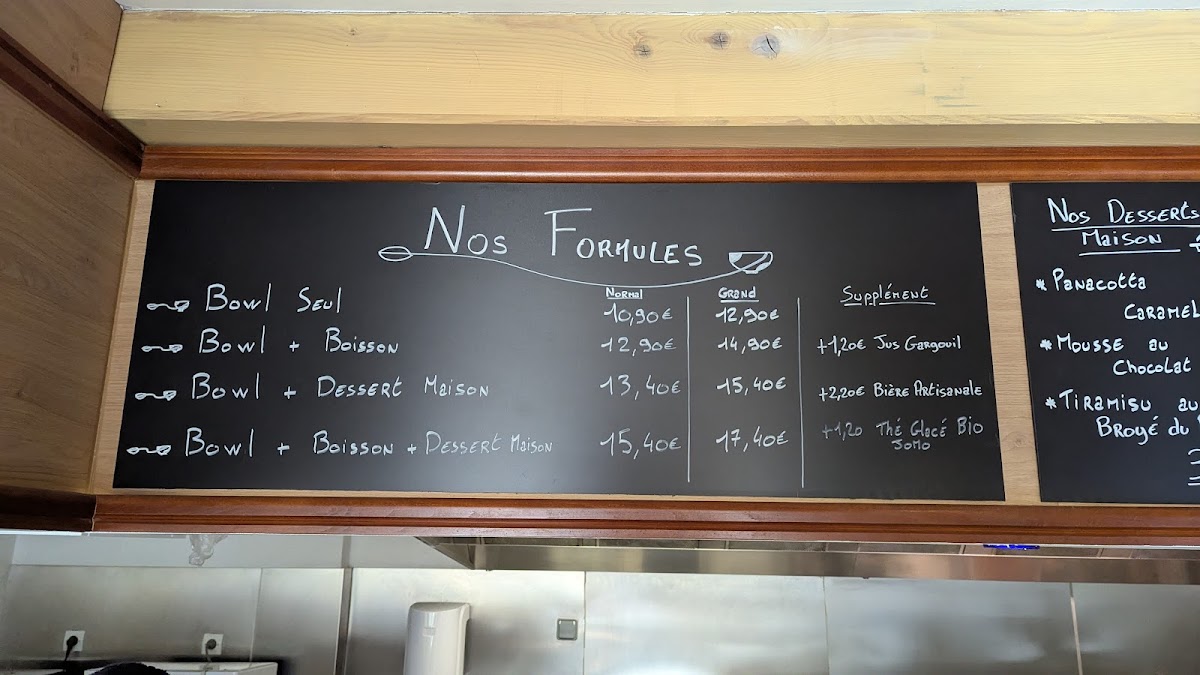 Nos Formules
Normal Grand Supplément
Bowl Seul 10,90€ 12,90€
Bowl + Boisson 12,90€ 14,90€ +1,20€ Jus Gargouil
Bowl + Dessert Maison 13,40€ 15,40€ +2,20€ Bière Artisanale
Bowl + Boisson + Dessert Maison 15,40€ 17,40€ +1,20 Thé Glacé Bio
JoMo
Nos Desserts
Maison
*Panacotta
Caramel
*Mousse au
Chocolat
*Tiramisu au
Broyé du